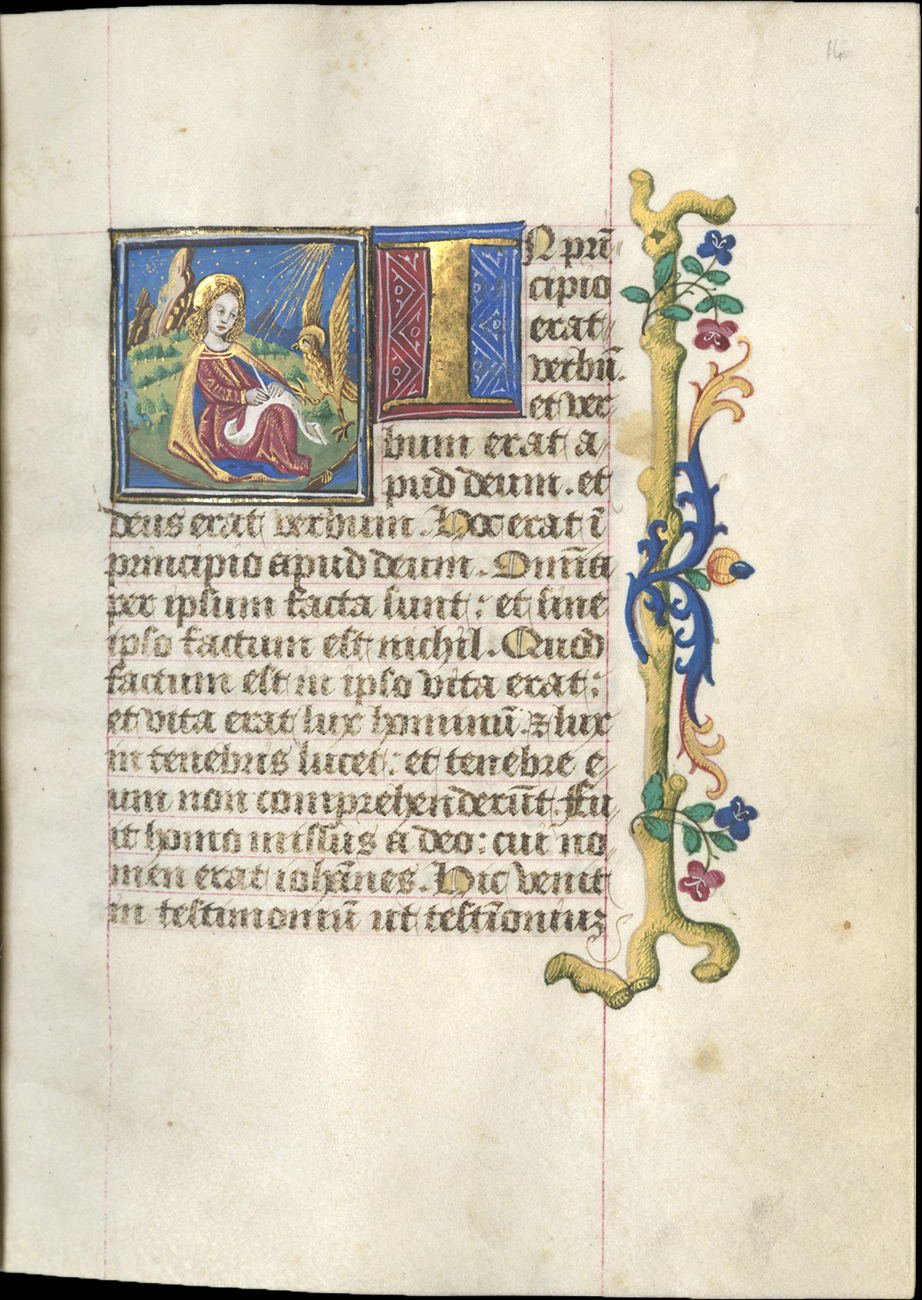 14
IN prī
cipio
erat
verbū.
et ver
bum erat a
pud deum. et
deus erat verbum. Hoc erat ī
principio apud deum. Omīa
per ipsum facta sunt: et sine
ipso factum est nichil. Quod
factum est in ipso vita erat:
et vita erat lux hominū. ⁊ lux
in tenebris lucet: et tenebre e
um non comprehenderūt. Fu
it homo missus a deo: cui no
men erat iohānes. Hic venit
in testimoniū ut testīoniuꝫ